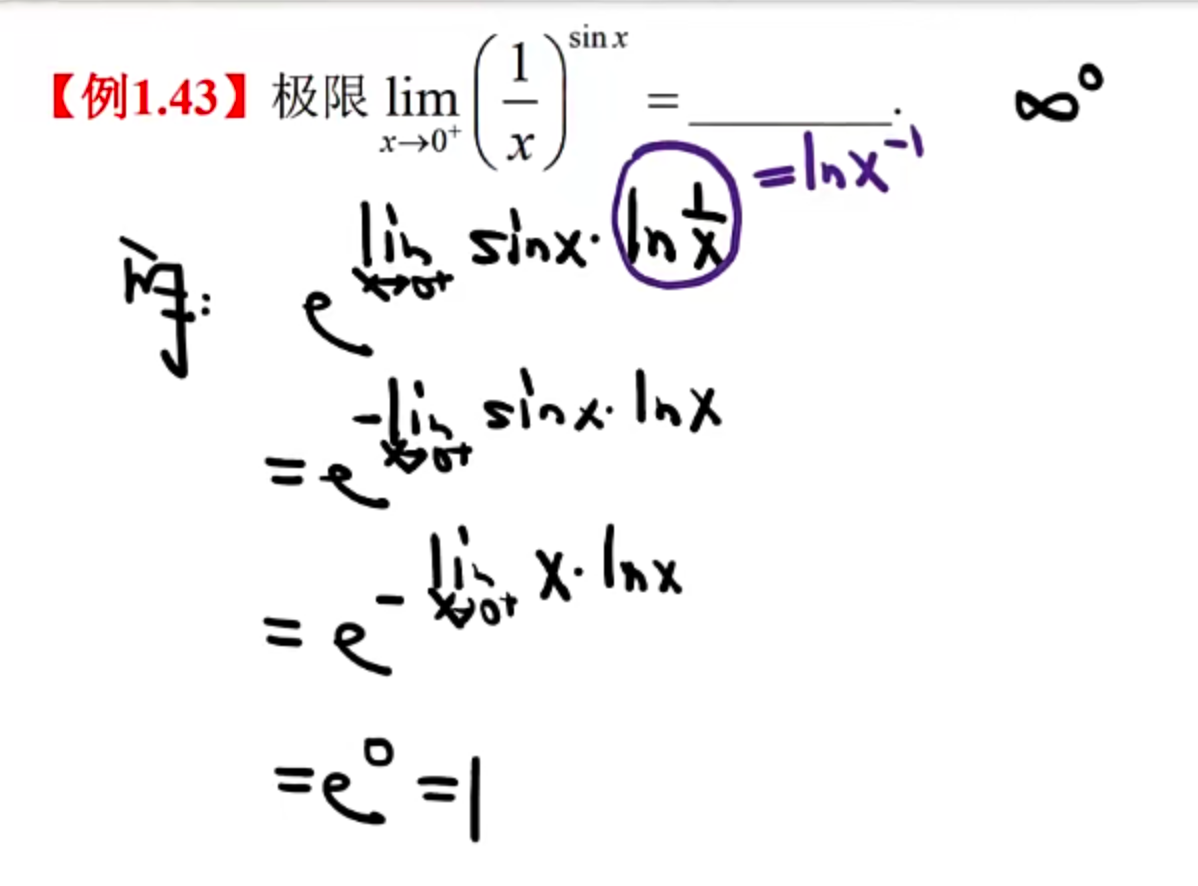 【例1.43】极限 $\lim\limits_{x\to 0^+}\left(\frac{1}{x}\right)^{\sin x}$ = ________. ∞⁰
= ln x⁻¹
解: $e^{\lim\limits_{x\to 0^+} \sin x\cdot \ln\frac{1}{x}}$
$= e^{-\lim\limits_{x\to 0^+} \sin x\cdot \ln x}$
$= e^{-\lim\limits_{x\to 0^+} x\cdot \ln x}$
$= e^0 = 1$